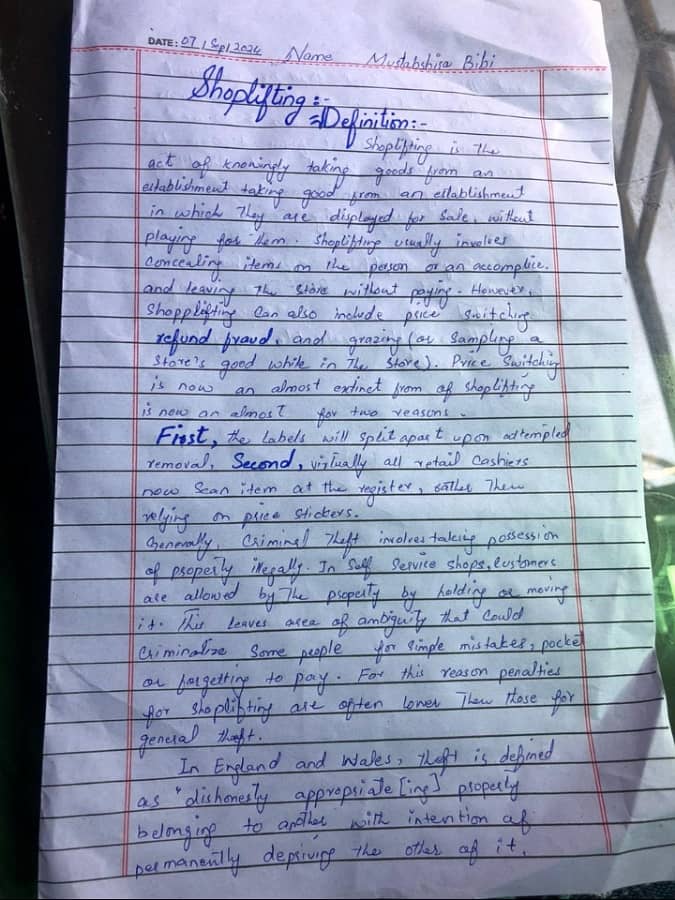 DATE: 07 / Sep / 2024 Name Mustabshira Bibi
Shoplifting:-
⇒Definition:-
Shoplifting is the
act of knowingly taking goods from an
establishment taking good from an establishment
in which They are displayed for sale, without
playing for them. Shoplifting usually involves
Concealing items on the person or an accomplice.
and leaving The store without paying. However,
Shopplifting Can also include price switching
refund fraud, and grazing (or Sampling a
store's good while in The store). Price Switching
is now an almost extinct from of shoplifting
is now an almost for two reasons.
First, the Labels will split apart upon adtempled
removal, Second, virtually all retail Cashiers
now Scan item at the register, rather Then
relying on price stickers.
Generally, Criminal Theft involves taking possession
of property illegally. In Self Service shops, Customers
are allowed by The property by holding or moving
it. This leaves area of ambiguity that Could
Criminalize Some people for simple mistakes, pocket
or forgetting to pay. For this reason penalties
for shoplifting are often lower Then those for
general theft.
In England and Wales, theft is defined
as "dishonestly appropriate [ing] property
belonging to another with intention of
permanently depriving the other of it.